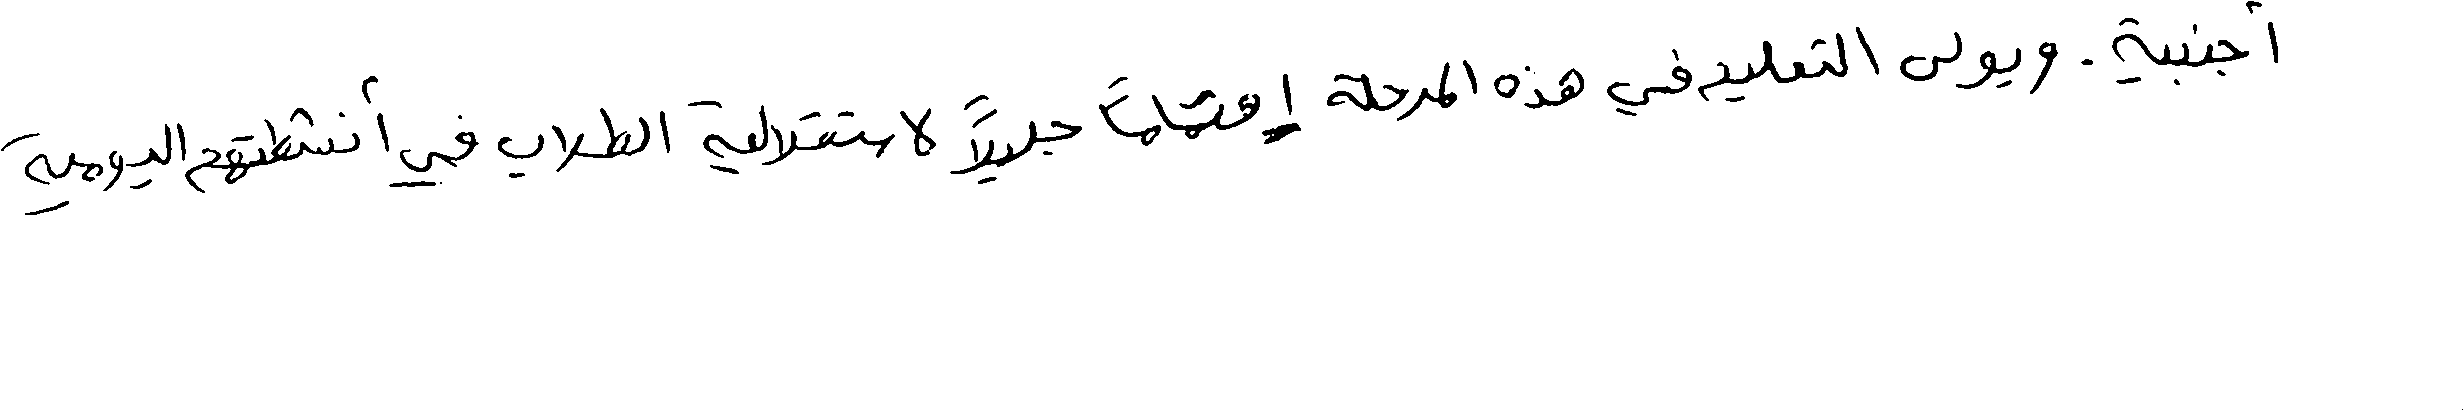 أجنبية. ويولى التعليم في هذه المرحلة إهتمامًا جليلاً لاستقلالية الطلاب في أنشطتهم اليومية